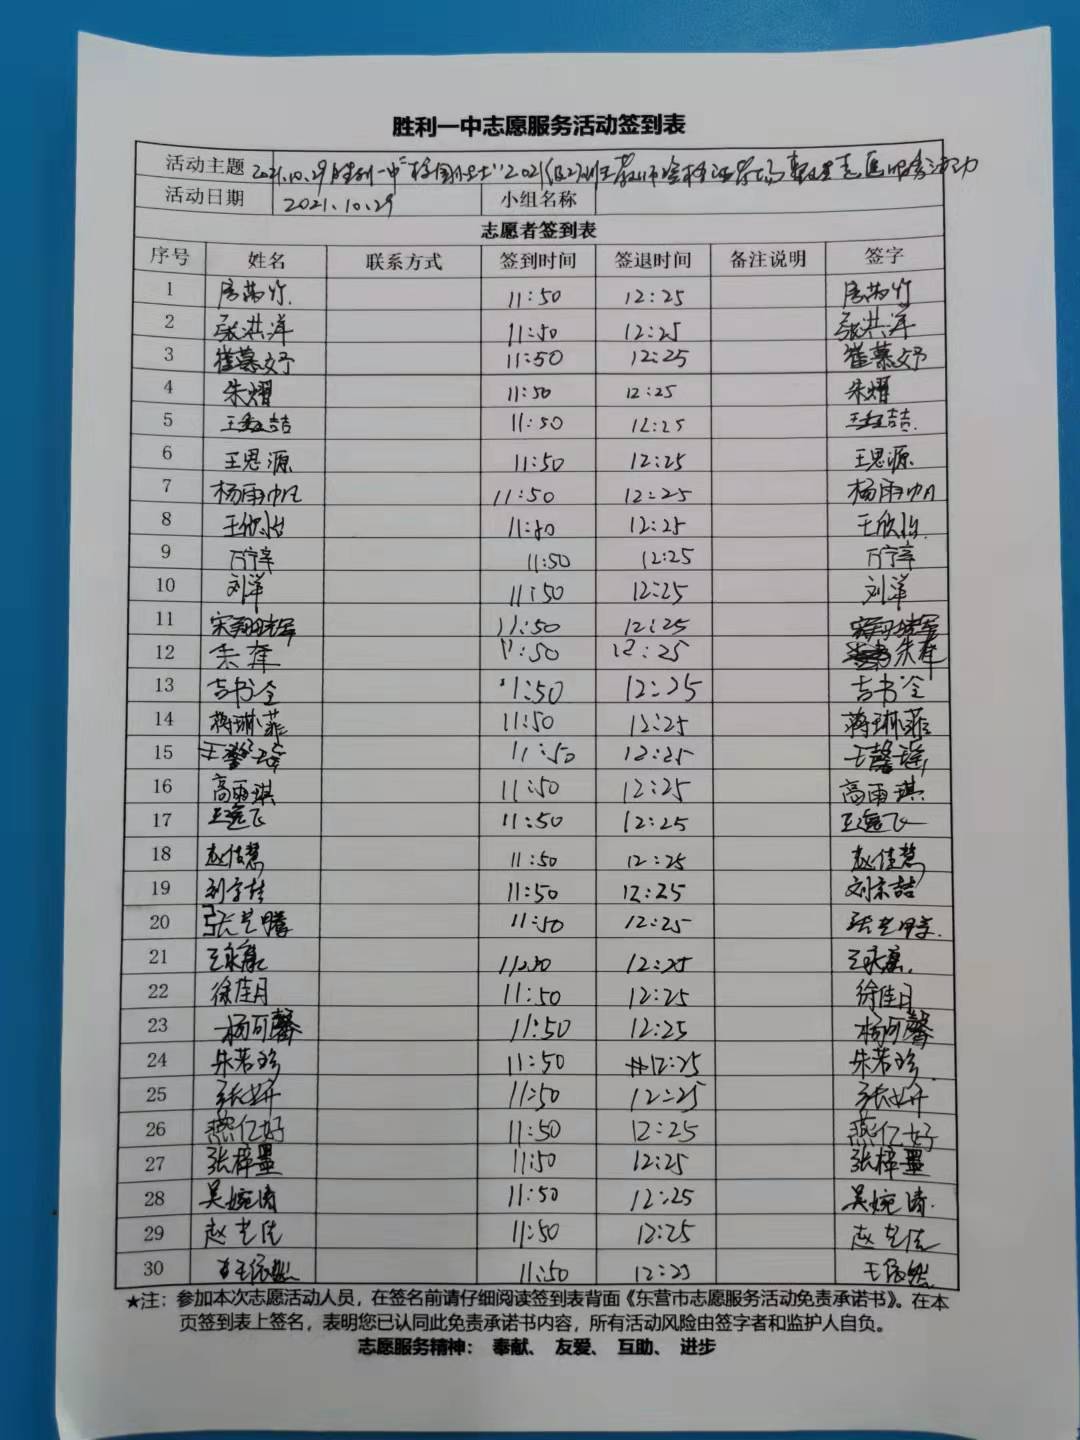 胜利一中志愿服务活动签到表
活动主题 2021.10.29胜利一中"校园卫士"2021级 志愿服务活动
活动日期 2021.10.29 小组名称
志愿者签到表
序号 姓名 联系方式 签到时间 签退时间 备注说明 签字
1 11:50 12:25
2 张洪洋 11:50 12:25 张洪洋
3 崔慕妤 11:50 12:25 崔慕妤
4 朱熠 11:50 12:25 朱熠
5 11:50 12:25
6 王思源 11:50 12:25 王思源
7 杨雨帆 11:50 12:25 杨雨帆
8 王欣怡 11:50 12:25 王欣怡
9 万宁 11:50 12:25 万宁
10 刘洋 11:50 12:25 刘洋
11 11:50 12:25
12 11:50 12:25
13 吉书全 11:50 12:25 吉书全
14 蒋琳菲 11:50 12:25 蒋琳菲
15 王馨瑶 11:50 12:25 王馨瑶
16 高雨琪 11:50 12:25 高雨琪
17 王逸飞 11:50 12:25 王逸飞
18 赵佳慧 11:50 12:25 赵佳慧
19 11:50 12:25
20 张艺腾 11:50 12:25 张艺腾
21 王永康 11:50 12:25 王永康
22 徐佳月 11:50 12:25 徐佳月
23 杨可馨 11:50 12:25 杨可馨
24 朱若珍 11:50 12:25 朱若珍
25 张妍 11:50 12:25 张妍
26 燕亿好 11:50 12:25 燕亿好
27 张梓墨 11:50 12:25 张梓墨
28 吴婉清 11:50 12:25 吴婉清
29 赵艺佳 11:50 12:25 赵艺佳
30 王依然 11:50 12:25 王依然
★注：参加本次志愿活动人员，在签名前请仔细阅读签到表背面《东营市志愿服务活动免责承诺书》。在本
页签到表上签名，表明您已认同此免责承诺书内容，所有活动风险由签字者和监护人自负。
志愿服务精神： 奉献、 友爱、 互助、 进步